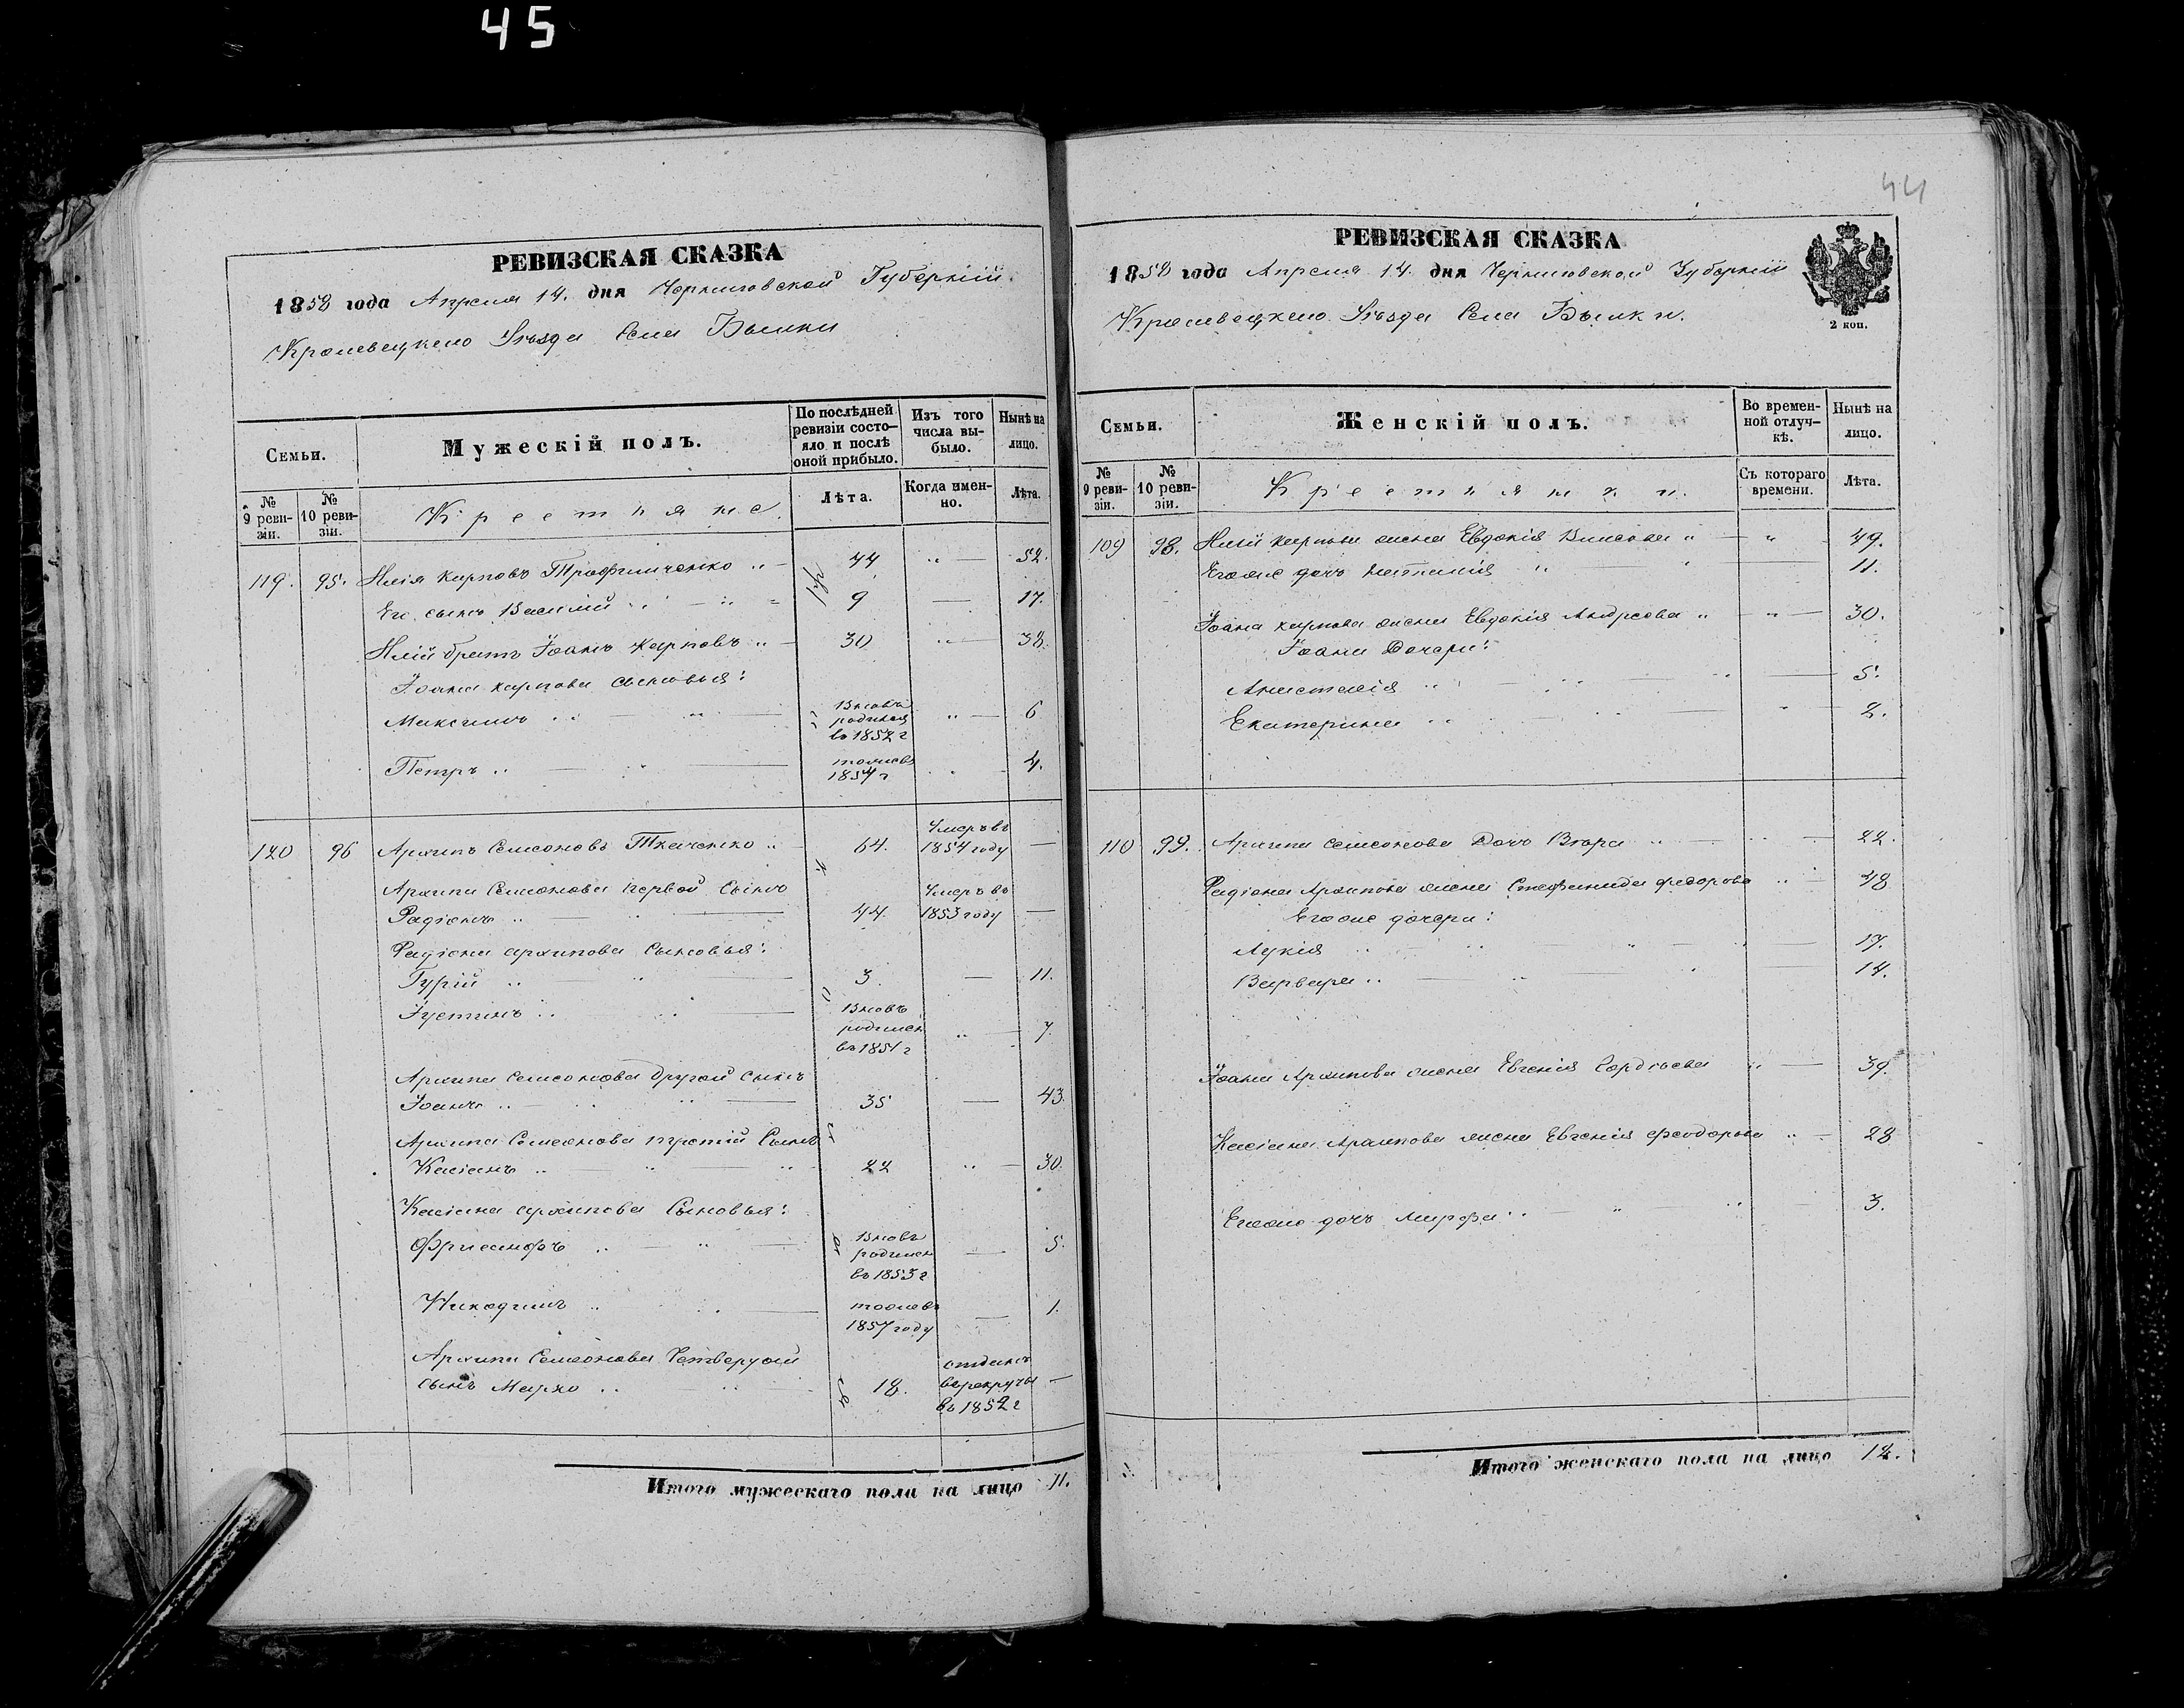 45
44
РЕВИЗСКАЯ СКАЗКА
1858 года Апреля 14. дня Черниговской Губерніи
Кролевецкаго Уѣзда Села Быики
Семьи.
Мужескій полъ.
По послѣдней ревизіи состояло и послѣ оной прибыло.
Изъ того числа выбыло.
Нынѣ на лицо.
№ 9 ревизіи.
№ 10 ревизіи.
Крестьяне
Лѣта.
Когда именно.
Лѣта.
119. 95. Илія Карповъ Трофимченко 44 52.
Его сынъ Василій 9 17.
Иліи братъ Іоанъ Карповъ 30 38.
Іоана Карпова сыновья:
Максимъ Вновь родился въ 1852 г 6
Петръ тожъ въ 1854 г 4.
120 96 Архипъ Семеоновъ Ткаченко 64. Умеръ въ 1854 году —
Архипа Семеонова первой сынъ
Радіонъ 44. Умеръ въ 1853 году —
Радіона Архипова Сыновья:
Гурій 3. — 11.
Іустинъ Вновь родился въ 1851 г 7.
Архипа Семеонова другой сынъ
Іоанъ 35 — 43.
Архипа Семеонова третій Сынъ
Касіанъ 22 30.
Касіана Архипова Сыновья:
Фрисанфъ Вновь родился въ 1853 г — 5.
Никодимъ тожъ въ 1857 году — 1.
Архипа Семеонова Четвертой
сынъ Марко 18. отданъ въ рекруты въ 1852 г —
Итого мужескаго пола на лицо 11.
РЕВИЗСКАЯ СКАЗКА
1858 года Апреля 14. дня Черниговской Губерніи
Кролевецкаго Уѣзда Села Быики.
2 коп.
Семьи.
Женскій полъ.
Во временной отлучкѣ.
Нынѣ на лицо.
№ 9 ревизіи.
№ 10 ревизіи.
Крестьянки.
Съ котораго времени.
Лѣта.
109 98. Иліи Карпова жена Евдокія Власова 49.
Егоже дочь Наталія 11.
Іоана Карпова жена Евдокія Андреева 30.
Іоана Дочери:
Анастасія 5.
Екатерина 2.
110 99. Архипа Семеонова Дочь Вѣра 22.
Радіона Архипова жена Стефанида Федорова 48
Егоже дочери:
Лукія 17.
Варвара 14.
Іоана Архипова жена Евгенія Гордѣева 39.
Касіана Архипова жена Евгенія Феодорова 28
Егоже дочь Марфа 3.
Итого женскаго пола на лицо 12.